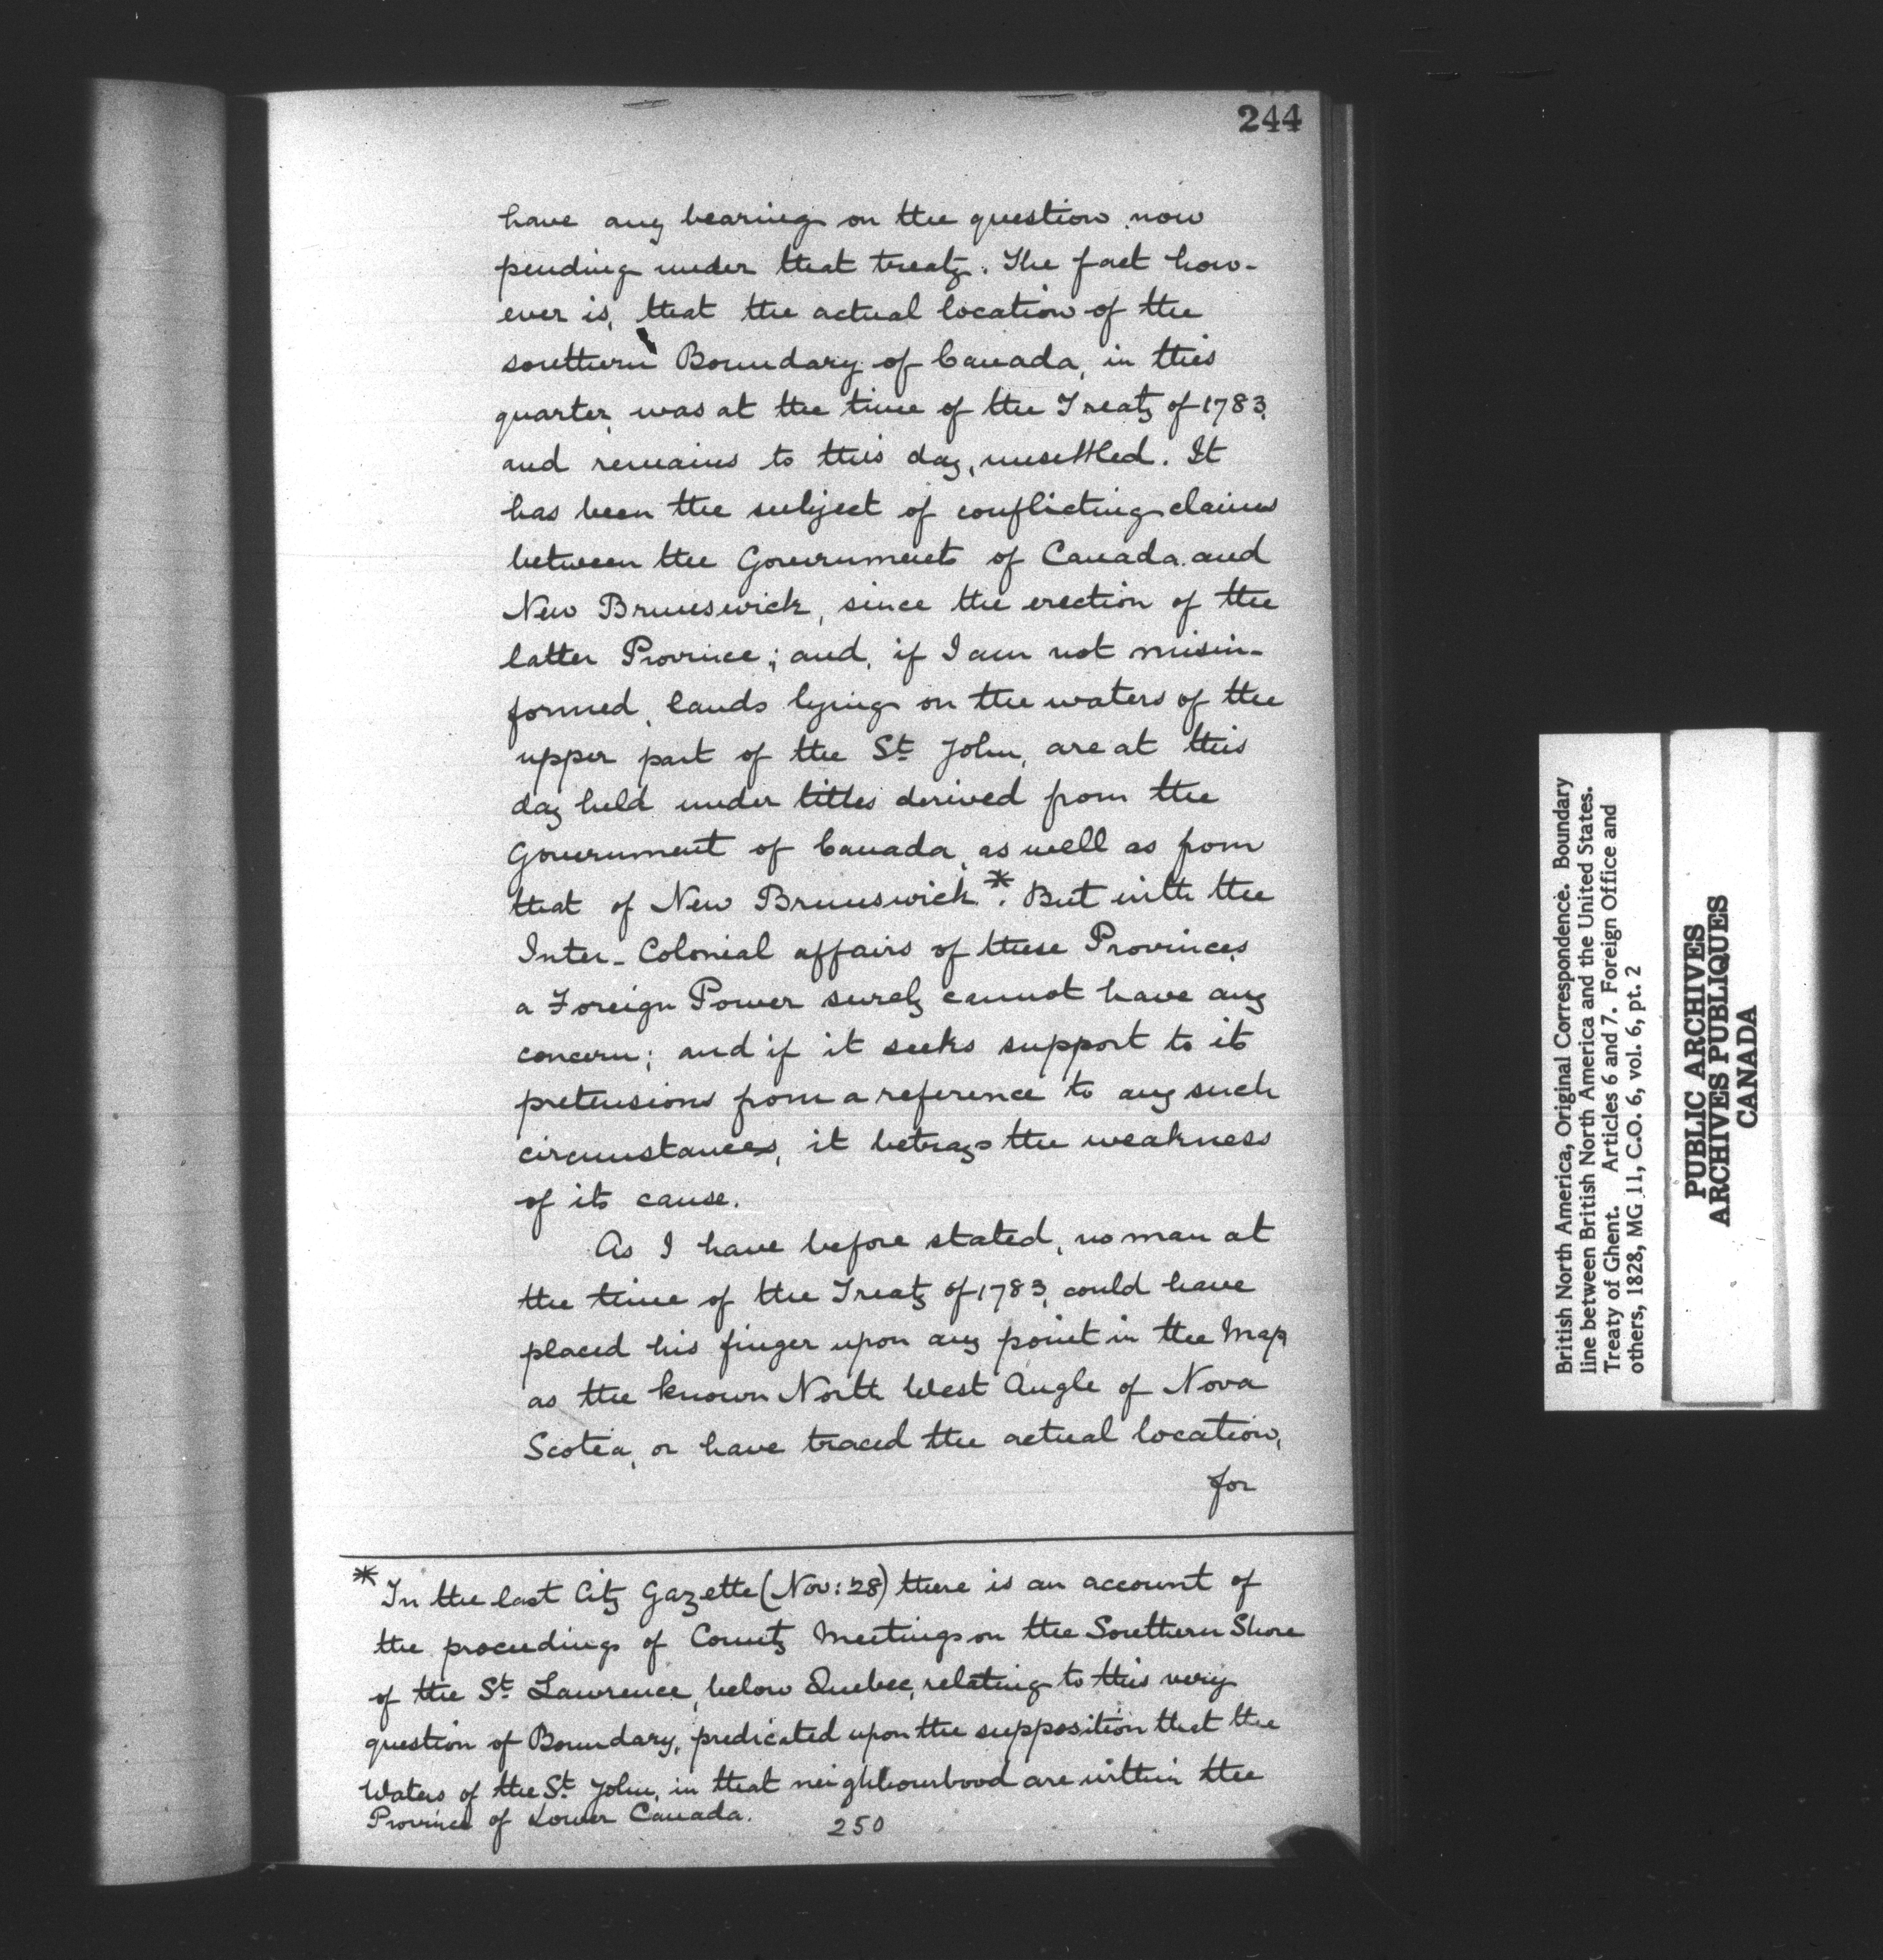 244
have any bearing on the question now
pending under that treaty. The fact how-
ever is, that the actual location of the
southern Boundary of Canada, in this
quarter, was at the time of the Treaty of 1783,
and remains to this day, unsettled. It
has been the subject of conflicting claims
between the Governments of Canada and
New Brunswick, since the erection of the
latter Province; and, if I am not misin-
formed, lands lying on the waters of the
upper part of the St John, are at this
day held under titles derived from the
Government of Canada, as well as from
that of New Brunswick*. But with the
Inter-Colonial affairs of these Provinces,
a Foreign Power surely cannot have any
concern; and if it seeks support to its
pretensions from a reference to any such
circumstances, it betrays the weakness
of its cause.
As I have before stated, no man at
the time of the Treaty of 1783, could have
placed his finger upon any point in the Map
as the known North West Angle of Nova
Scotia, or have traced the actual location,
for
* In the last City Gazette (Nov: 28) there is an account of
the proceedings of County Meetings on the Southern Shore
of the St Lawrence, below Quebec, relating to this very
question of Boundary, predicated upon the supposition that the
Waters of the St John, in that neighbourhood are within the
Province of Lower Canada.
250
British North America, Original Correspondence. Boundary
line between British North America and the United States.
Treaty of Ghent. Articles 6 and 7. Foreign Office and
others, 1828, MG 11, C.O. 6, vol. 6, pt. 2
PUBLIC ARCHIVES
ARCHIVES PUBLIQUES
CANADA